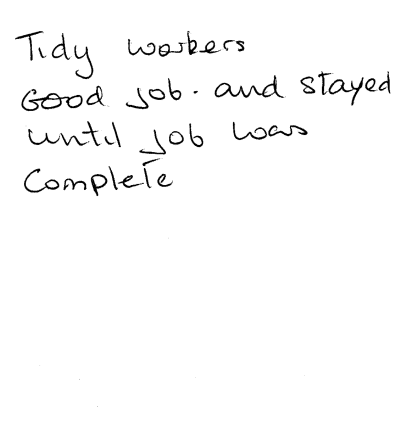 Tidy workers
Good job. and stayed
until job was
Complete